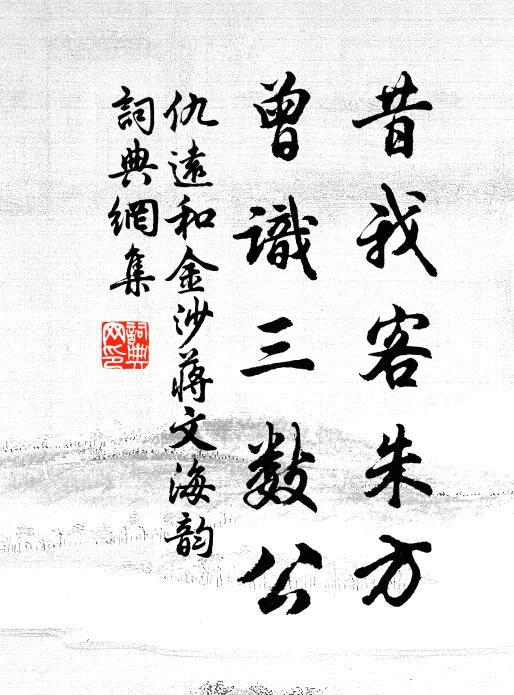 昔我客朱方
曾識三数公
仇遠和金沙蔣文海韵
詞典網集
詞典网印